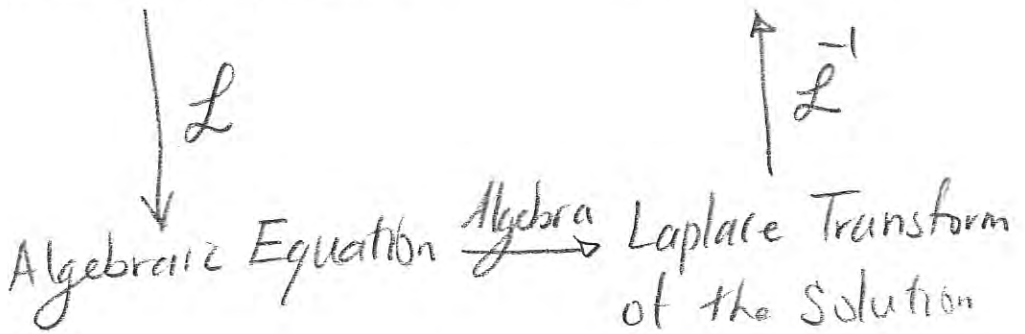 ℒ
ℒ⁻¹
Algebraic Equation
Algebra
Laplace Transform
of the Solution